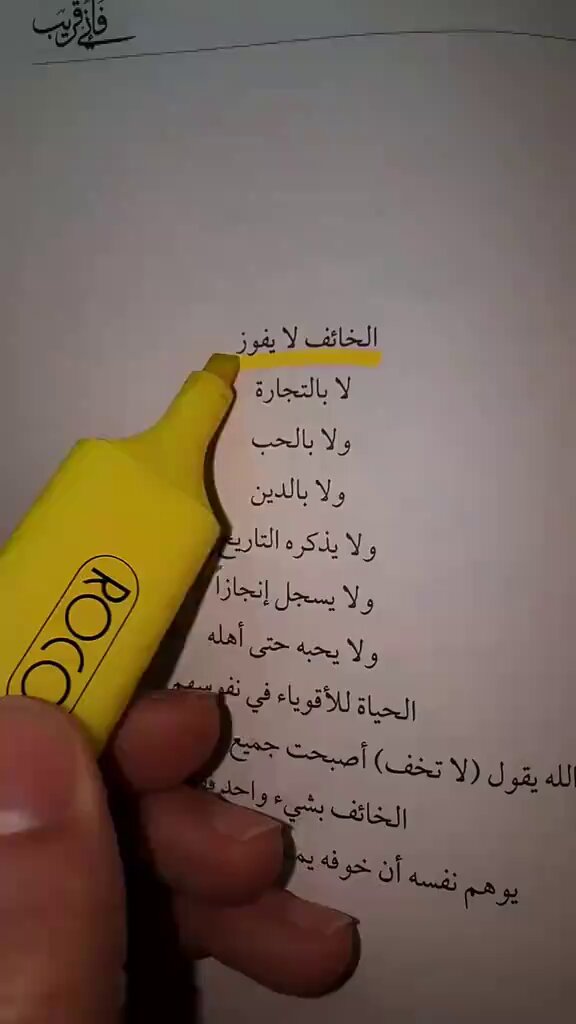 فإني قريب
الخائف لا يفوز
لا بالتجارة
ولا بالحب
ولا بالدين
ولا يذكره التاريخ
ولا يسجل إنجازاً
ولا يحبه حتى أهله
الحياة للأقوياء في نفوسهم
الله يقول (لا تخف) أصبحت جميع
الخائف بشيء واحد
يوهم نفسه أن خوفه
ROCO